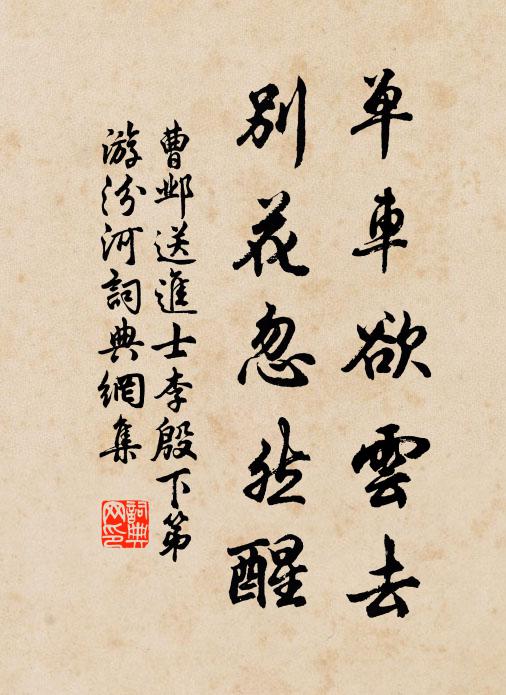 单車欲雲去
别花忽然醒
曹邺送進士李殷下第
游汾河詞典網集
詞典
网印